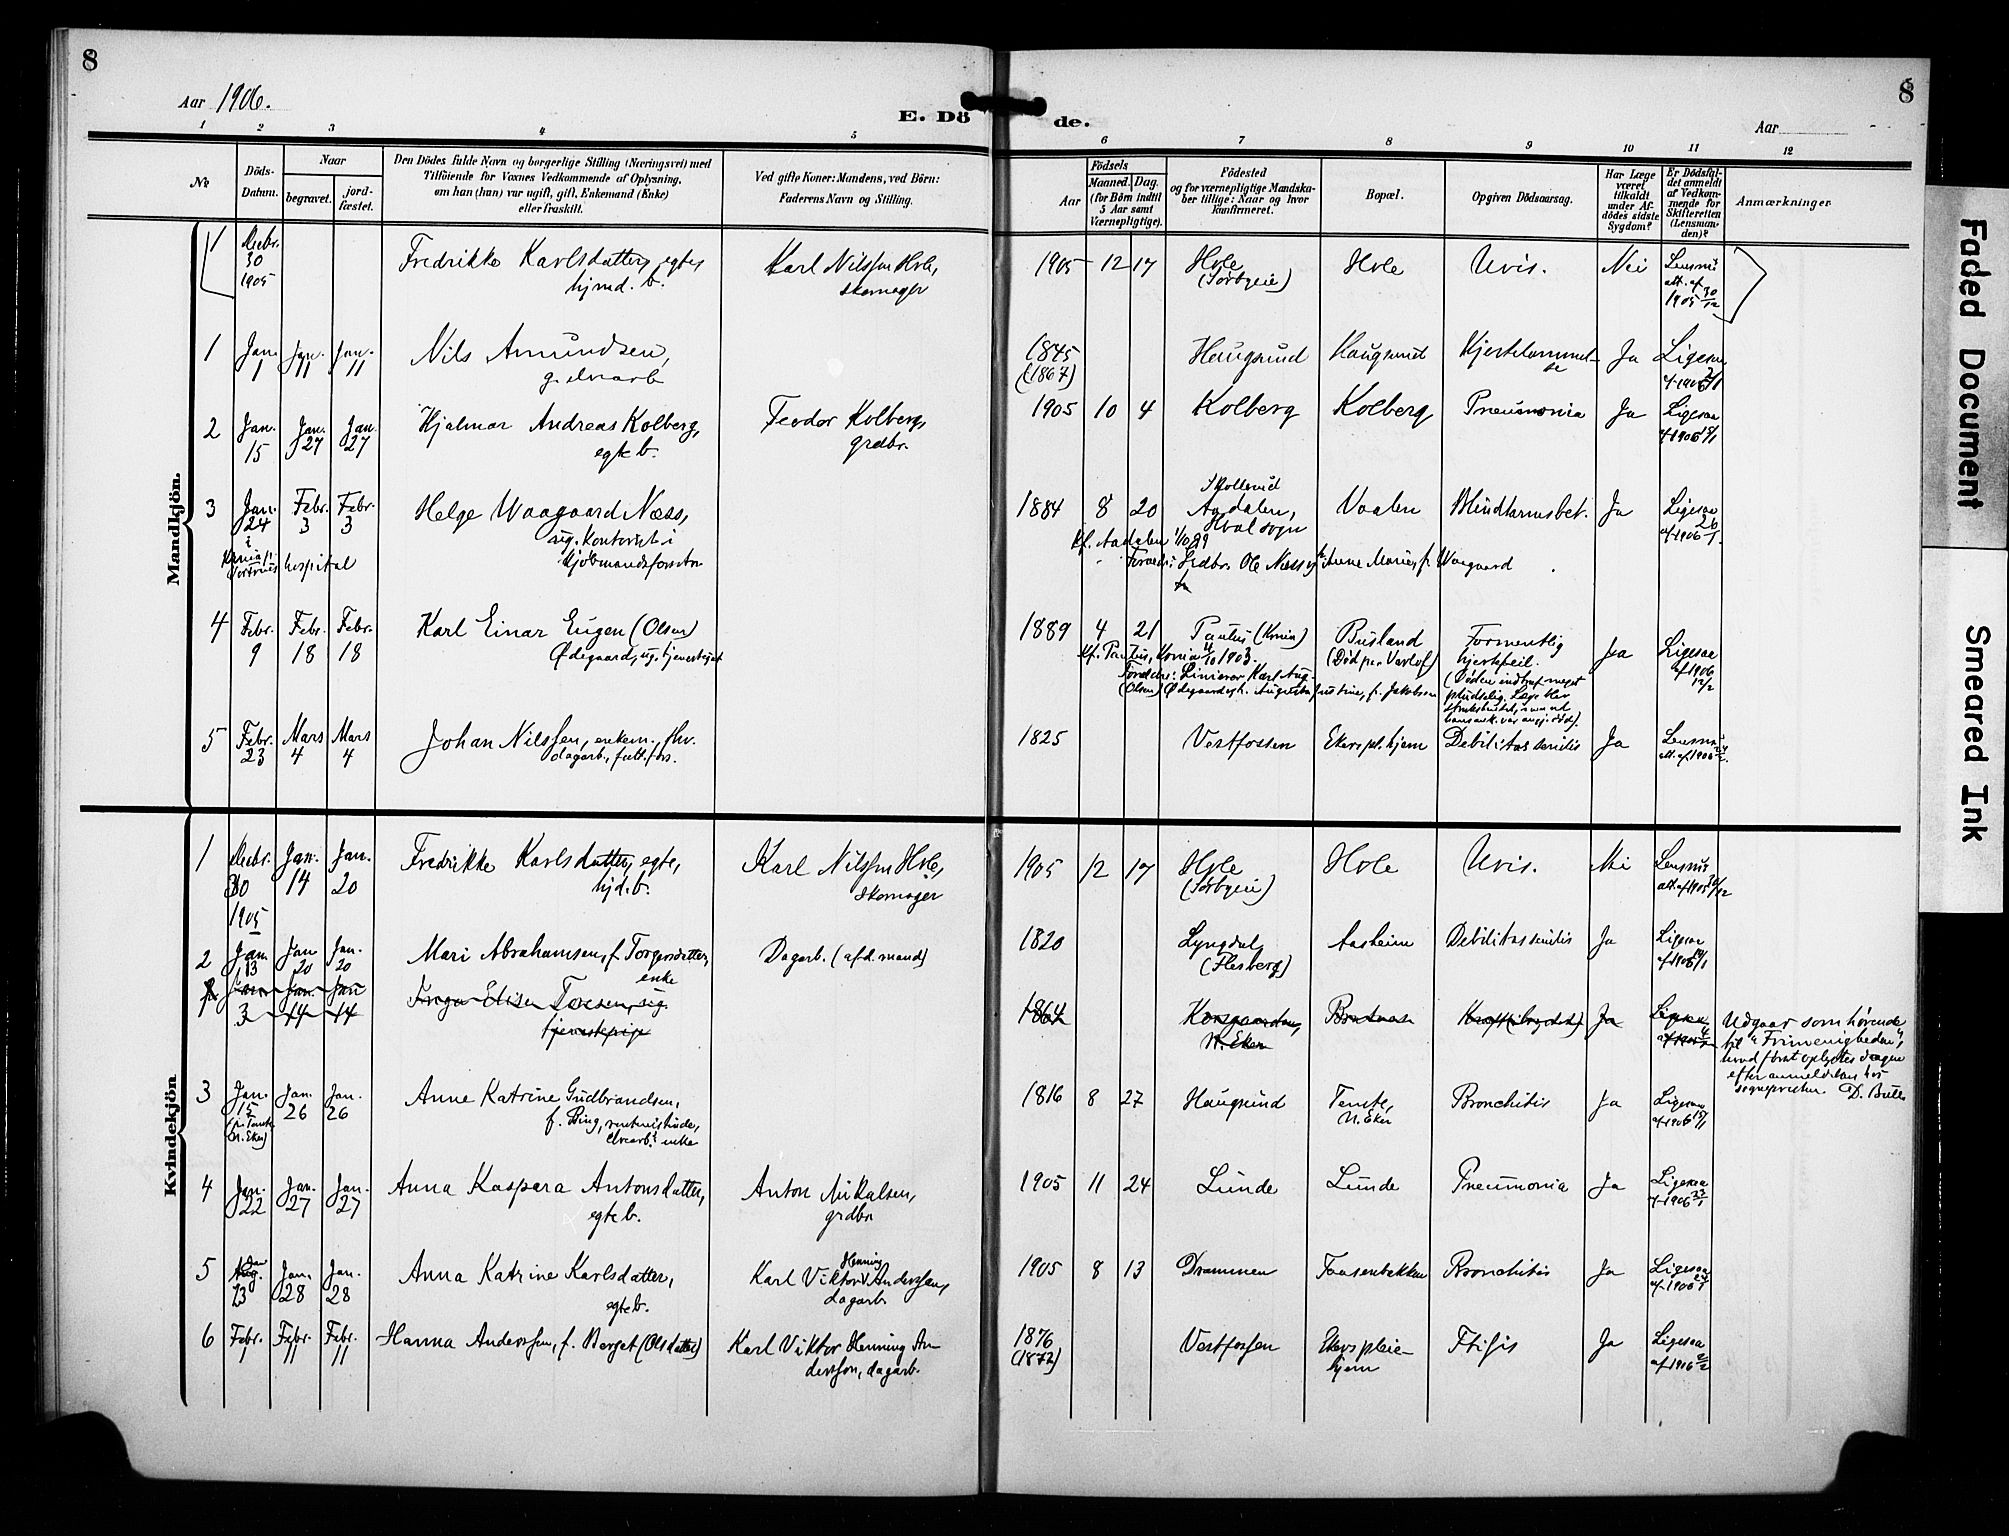 8
8
Aar 1906.
E. Dö de.
Aar
1 2 3 4 5 6 7 8 9 10 11 12
No
Döds-Datum.
Naar
begravet.
jord-fæstet.
Den Dödes fulde Navn og borgerlige Stilling (Næringsvei) med
Tilföiende for Voxnes Vedkommende af Oplysning,
om han (hun) var ugift, gift, Enkemand (Enke)
eller fraskilt.
Ved gifte Koner: Mandens, ved Börn:
Faderens Navn og Stilling.
Födsels
Aar
Maaned. Dag.
(for Börn indtil
5 Aar samt
Værnepligtige).
Födested
og for værnepligtige Mandska-
ber tillige: Naar og hvor
konfirmeret.
Bopæl.
Opgiven Dödsaarsag.
Har Læge
været
tilkaldt
under Af-
dödes sidste
Sygdom?
Er Dödsfal-
det anmeldt
af Vedkom-
mende for
Skifteretten
(Lensman-
den)?
Anmærkninger
Mandkjön.
1 Decbr. 30 1905 Fredrikke Karlsdatter, egte, Karl Nilssen Hole, 1905 12 17 Hole Hole Uvis. Nei Lensm's
hjmd. b. skomager (Sørbyeie) att. af 30/12 1905
1 Jan. 1 Jan. 11 Jan. 11 Nils Amundsen, 1845 Haugsund Haugsund Hjertelammel- Ja Ligesaa
(1867) se af 1906
2 Jan. 15 Jan. 27 Jan. 27 Hjalmar Andreas Kolberg, Teodor Kolberg, 1905 10 4 Kolberg Kolberg Pneumonia Ja Ligesaa
egte b. grdbr. af 1906 15/1
3 Jan. 24 Febr. 3 Febr. 3 Helge Waagaard Næss, 1884 8 20 Aadalen, Vaalen Blindtarmsbet. Ja Ligesaa
ug. kontorist i Hval sogn af 1906 26/1
hospital kjöbmandsforretn.
Kf. Aadalen 1/10 99
Forældr: Grdbr. Ole Næss og Anne Marie, f. Waagaard
4 Febr. 9 Febr. 18 Febr. 18 Karl Einar Eugen (Olsen) 1889 4 21 Paulus (Kr.nia) Busland Formentlig Ja Ligesaa
Ødegaard, ug. tjenestegut (Død paa Varlof) hjertefeil. af 1906 12/2
Kf. Paulus, Kr.nia 4/10 1903.
Forældre: Linierer Karl Aug.
(Olsen) Ødegaard og h. Augusta Justine, f. Jakobsen
(Døden indtraf meget
pludselig. Læge blev
5 Febr. 23 Mars 4 Mars 4 Johan Nilssen, enkem., fhv. 1825 Vestfossen Ekers pl. hjem Debilitas senilis Ja Lensm's
dagarb., fatt. fors. att. af 1906
Kvindekjön
1 Decbr. 30 1905 Jan. 14 Jan. 20 Fredrikke Karlsdatter, egte, Karl Nilssen Hole, 1905 12 17 Hole Hole Uvis. Nei Lensm's
hjd. b. skomager (Sørbyeie) att. af 1905 30/12
2 Jan. 13 Jan 20 Jan. 20 Mari Abrahamsen, f. Torgersdatter, Dagarb. (afd. mand) 1820 Lyngdal, Aasheim Debilitas senilis Ja Ligesaa
enke (Flesberg) af 1906 14/1
Jan. 3 Jan. 14 Jan 14 Elise Toresen, ug. 1864 Korsgaarden, Ja Ligesaa
tjenestepige N. Eker
Udgaar som hørende
til "Frimenigheden",
hvad først oplystes dagen
efter anmeldelsen hos
sognepresten D. Bull
3 Jan. 15 Jan. 26 Jan. 26 Anne Katrine Gudbrandsen, 1816 8 27 Haugsund Temte, Bronchitis Ja Ligesaa
(paa Temte N. Eker) f. Bing, enke N. Eker af 1906 15/1
4 Jan. 22 Jan. 27 Jan. 27 Anna Kaspara Antonsdatter, Anton Mikalsen, 1905 11 24 Lunde Lunde Pneumonia Ja Ligesaa
egte b. grdbr. af 1906 22/1
5 Jan 23 Jan. 28 Jan. 28 Anna Katrine Karlsdatter, Karl Viktor Henning Anderssen, 1905 8 13 Drammen Taasenbakken Bronchitis Ja Ligesaa
egte b. dagarb. af 1906
6 Febr. 1 Febr. 11 Febr. 11 Hanna Anderssen, f. Berget (Olsdatter) Karl Viktor Henning An- 1876 Vestfossen Ekers pleie- Ftisis Ja Ligesaa
derssen, dagarb. (1872) hjem af 1906 2/2
Faded Document
Smeared Ink